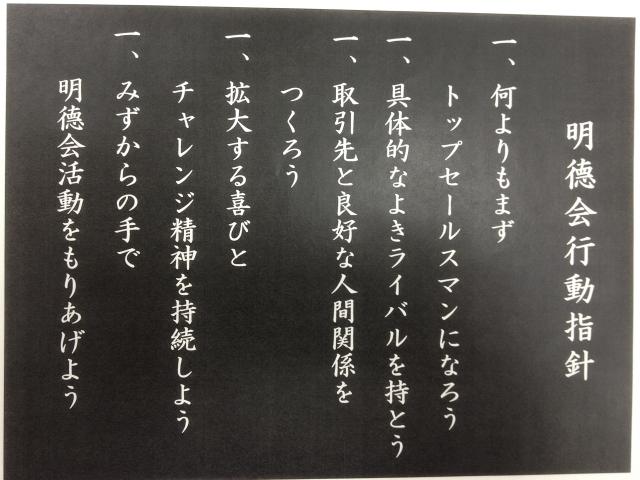 明徳会行動指針
一、何よりもまず
トップセールスマンになろう
一、具体的なよきライバルを持とう
一、取引先と良好な人間関係を
つくろう
一、拡大する喜びと
チャレンジ精神を持続しよう
一、みずからの手で
明德会活動をもりあげよう